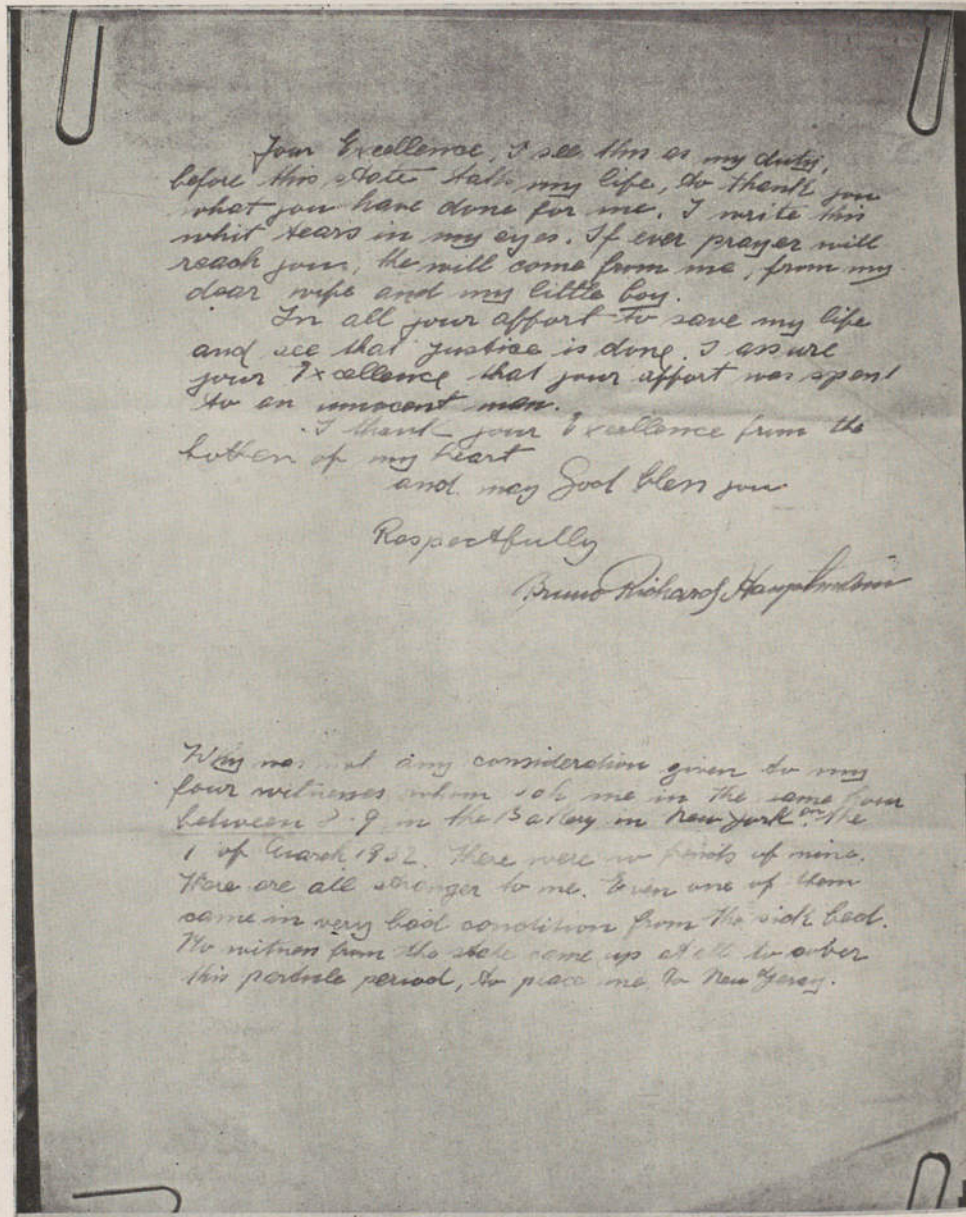 Your Excellence, I see this as my duty,
before this state takk my life, to thank you
what you have done for me. I write this
whit tears in my eyes. If ever prayer will
reach you, the will come from me, from my
dear wife and my little boy.
In all your affort to save my life
and see that justice is done. I assure
your Excellence that your affort was spent
to an innocent man.
I thank your Excellence from the
bottem of my heart
and may God bless you
Respectfully
Bruno Richard Hauptmann
Why was not any consideration given to my
four witnesses whom sah me in the same hour
between 7-9 in the Bakery in New York on the
1 of March 1932. There were no frinds of mine.
There are all stranger to me. Even one of them
came in very bad condition from the sick bed.
No witness from the state came up at all to
this period, to place me to New Yersey.